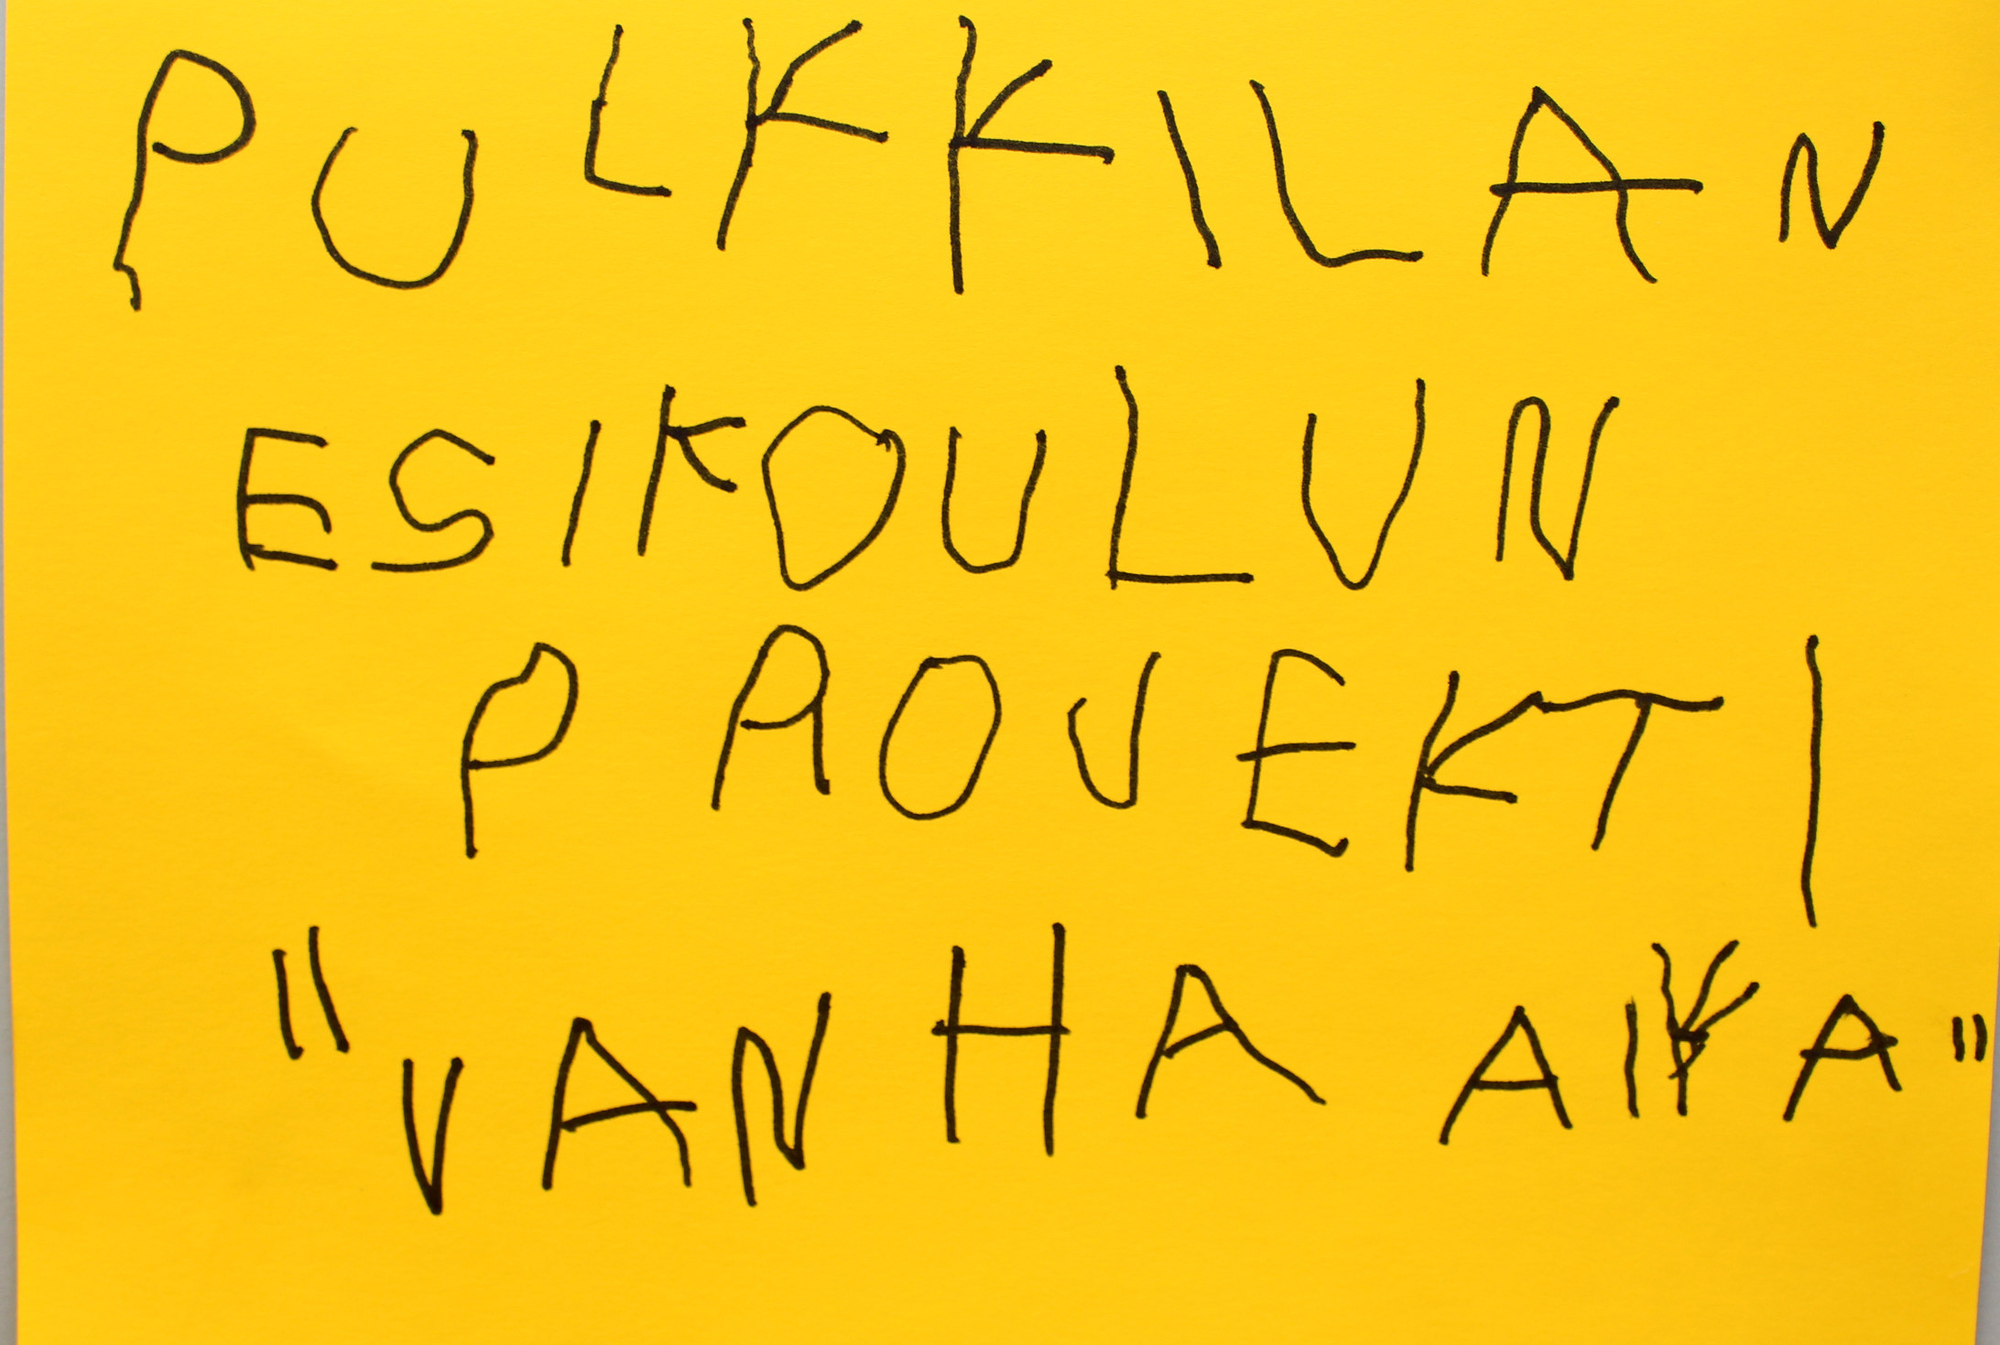 PULKKILAN
ESIKOULUN
PROJEKTI
"VANHA AIKA"